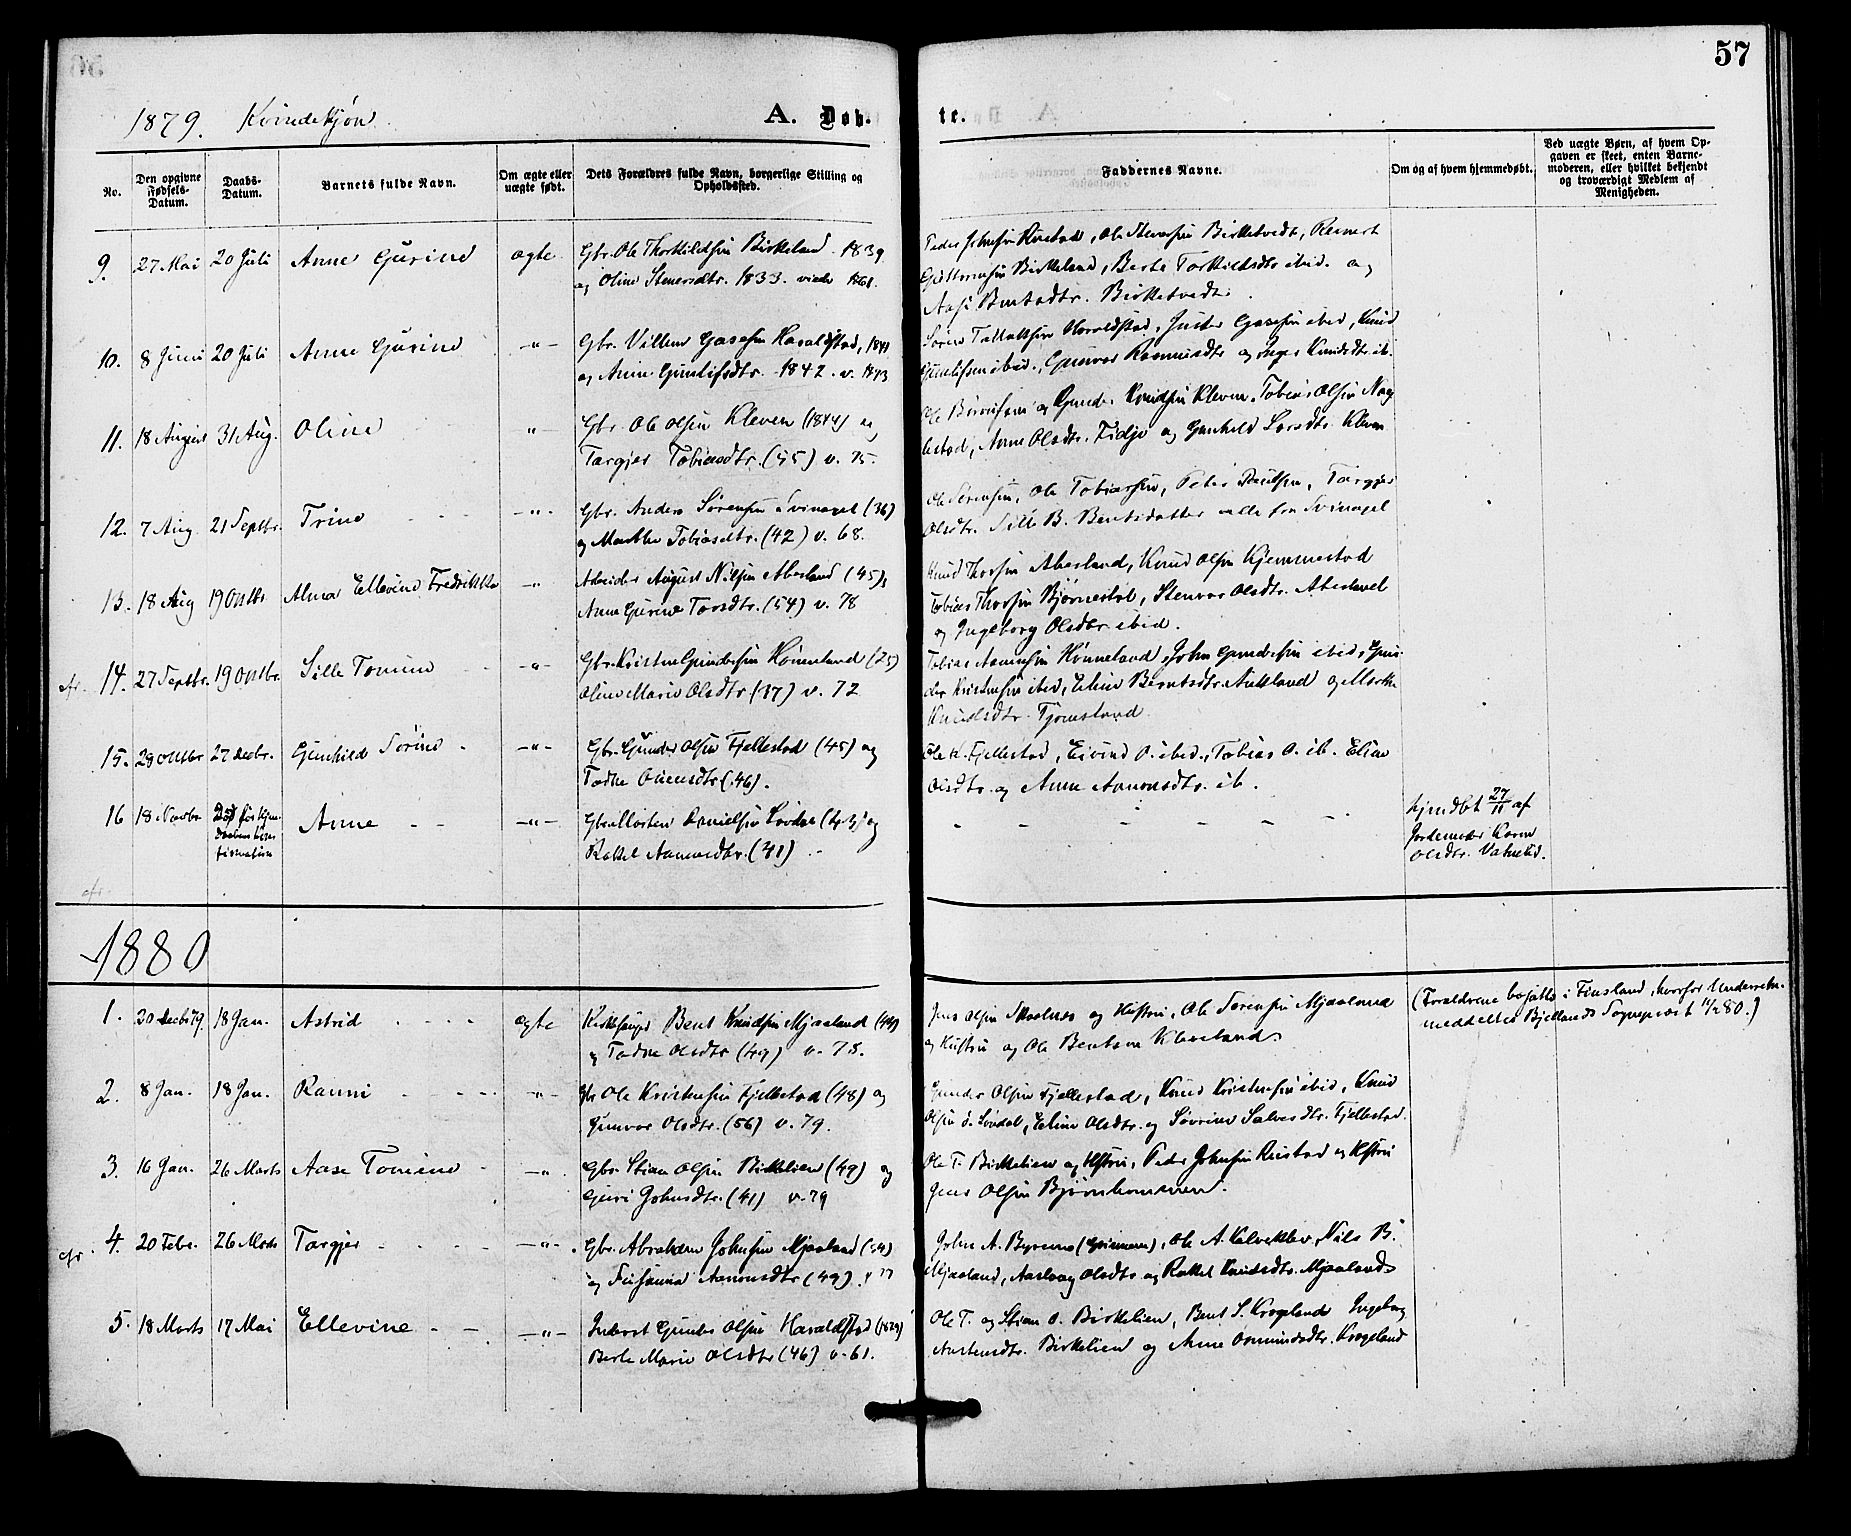 57
1879. Kvindekjøn
A. Døb-
te.
No.
Den opgivne Fødsels-Datum.
Daabs-Datum.
Barnets fulde Navn.
Om ægte eller uægte født.
Dets Forældres fulde Navn, borgerlige Stilling og Opholdssted.
Faddernes Navne.
Om og af hvem hjemmedøbt.
Ved uægte Børn, af hvem Opgaven er skeet, enten Barnemoderen, eller hvilket bekjendt og troværdigt Medlem af Menigheden.
9. 27 Mai 20 Juli Anne Gurine ægte Gbr. Ole Thorkildsen Birkeland 1839
og Oline Stenersdtr. 1833. viede 1861.
Peder Johnsen Ruestad, Ole Stenersen Birketvedt, Reinert
Birkeland, Berte Torkildsdtr ibid. og
Bentsdtr. Birketvedt.
10. 8 Juni 20 Juli Anne Gurine -"- Gbr. Villum Gasesen Haraldstad, 1841
og Anne Gunlefsdtr. 1842. v.
Søren Tallaksen Haraldstad, Gasesen ibid, Knud
Gunlefsen ibid., Gunvor Rasmusdtr og Inger Knudsdtr ib.
11. 18 August 31 Aug. Oline " Gbr. Ole Olsen Kleven (1844) og
Targjer Tobiasdtr. (55) v. 75.
og Gunder Knudsen Kleven, Tobias Olsen Nag-
lestad, Anne Olsdtr. Fidje og Gunhild Larsdtr. Kleven
12. 7 Aug. 21 Septbr. Trine -"- Gbr. Anders Sørensen Svinagel (36)
og Marthe Tobiasdtr. (42) v. 68.
Ole Sørensen, Ole Tobiassen, Peder Poulsen, Targjer
Olsdtr. Sille B. Bentsdatter alle fra Svinagel
13. 18 Aug 19 Octbr. Alma Ellevine Fredrikke -"- Arbeider August Nilsen Abesland (45),
Anne Gurine Torsdtr. (54) v. 78
Knud Thorsen Abesland, Knud Olsen Kjemmestad
Tobias Thorsen Bjørnestøl, Stenvor Olsdtr. Abesland
og Ingeborg Olsdtr. ibid.
cfr. 14. 27 Septbr. 19 Octbr. Sille Tomine -"- Gbr. Kristen Gundersen Hønneland (25)
Oline Marie Olsdtr (37) v. 72
Tobias Aanensen Hønneland, John Gundersen ibid, Gun-
der Kristensen ibid, Eline Berntsdtr. Aukland og Marthe
Knudsdtr. Tjomsland
15. 28 Octbr 27 Decbr. Gunhild Sørine -"- Gbr. Gunder Olsen Fjellestad (45) og
Todne Olsdtr (46).
Ole K. Fjellestad, Eivind O. ibid., Tobias O. ib. Eline
Olsdtr. og Anne Aanensdtr. ib.
16 18 Novbr. Død før Anne -"- Gbr. Morten Danielsen Løvdal (43) og
Rakel Aanensdtr. (41)
hjmdbt 27/11 af
Jordemor Karen
Olsdtr.
cfr.
1880
1. 30 Decbr 79. 18 Jan. Astrid ægte Kirkesanger Bent Knudsen Mjaaland (44)
og Todne Olsdtr (49) v. 75.
Jens Olsen og Hustru, Ole Sørensen Mjaaland
og Hustru og Ole Bentsen Kleveland.
(Forældrene bosatte i Finsland, hvorfor Underretn.
meddeltes Bjellands Sognepræst 80.)
2. 8 Jan. 18 Jan. Ranni -"- Gbr Ole Kristensen Fjellestad (48) og
Gunvor Olsdtr. (56) v. 79.
Gunder Olsen Fjellestad, Knud Kristensen ibid, Knud
Olsen Løvdal, Eline Olsdtr. og Sørine Salvesdtr. Fjellestad.
3. 16 Jan. 26 Marts Aase Tomine -"- Gbr. Stian Olsen Birkelien (49) og
Guri Johnsdtr. (41) v. 79
Ole T. Birkelien og Hstru, Peder Johnsen Ruestad og Hstru
Jens Olsen Bjørnkommen.
cfr. 4. 20 Febr. 26 Marts Targjer -"- Gbr. Abraham Johnsen Mjaaland (54)
og Susanna Aanonsdtr (49)
John A. Byremo (Grimen), Ole A. Kilvekleiv, Nils B.
Mjaaland, Aaslaug Olsdtr og Rakel Knudsdtr. Mjaaland
5. 18 Marts 17 Mai Ellevine -"- Inderst Gunder Olsen Haraldstad (1829)
Berte Marie Olsdtr (46) v. 61.
Ole T. og Stian O. Birkelien, Bent S. Krogeland, Ingeborg
Austensdtr. Birkelien og Anne Osmundsdtr. Krogeland